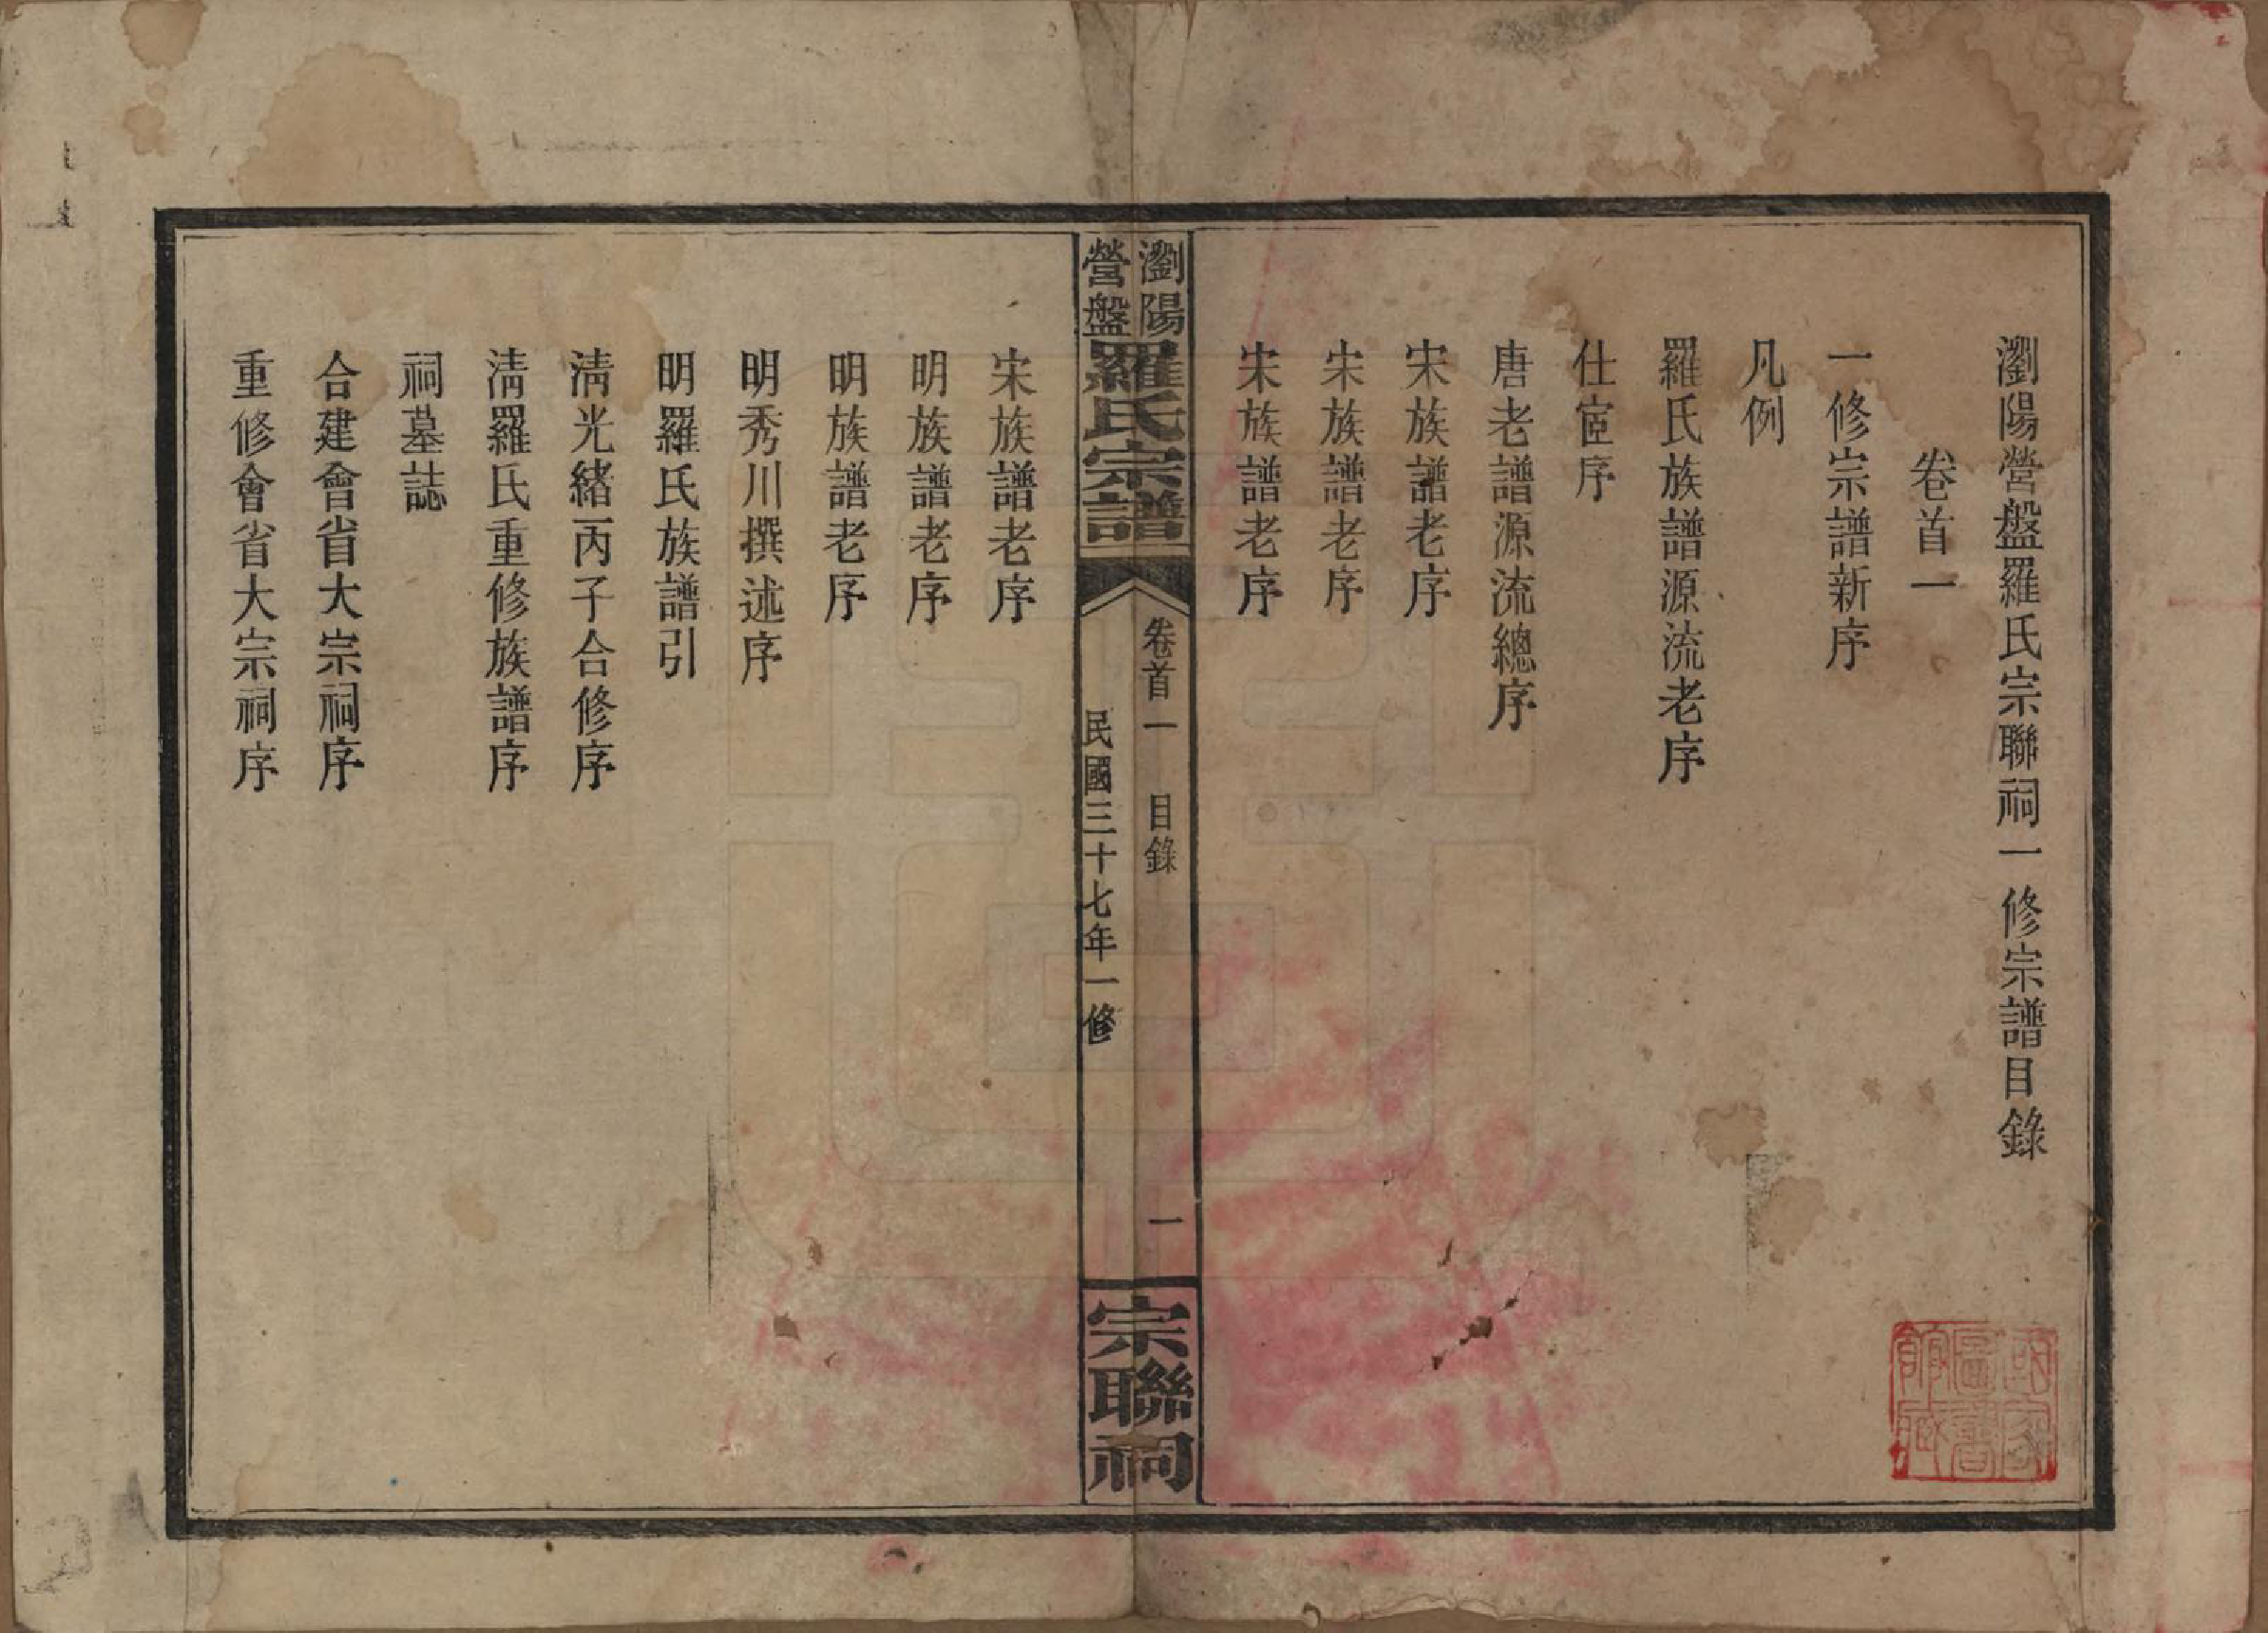 瀏陽營盤羅氏宗聯祠一修宗譜目錄
卷首一
一修宗譜新序
凡例
羅氏族譜源流老序
仕宦序
唐老譜源流總序
宋族譜老序
宋族譜老序
宋族譜老序
瀏陽
營盤
羅氏宗譜
卷首一 目錄 一
民國三十七年一修
宗聯祠
宋族譜老序
明族譜老序
明族譜老序
明秀川撰述序
明羅氏族譜引
清光緒丙子合修序
清羅氏重修族譜序
祠墓誌
合建會省大宗祠序
重修會省大宗祠序
國家
圖書
館藏